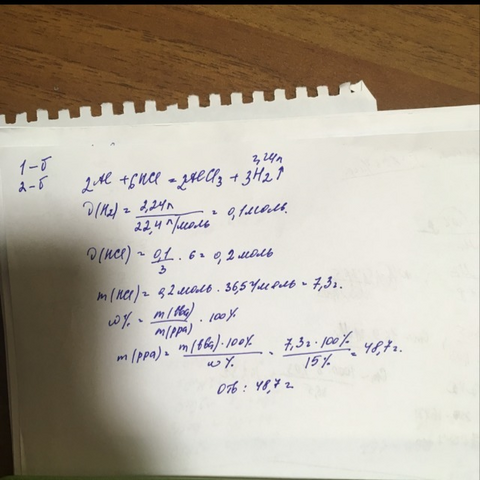 1-б
2-б
2,24л
2Al + 6HCl = 2AlCl3 + 3H2↑
ν(H2) = 2,24л / 22,4л/моль = 0,1моль.
ν(HCl) = 0,1 / 3 · 6 = 0,2 моль
m(HCl) = 0,2 моль · 36,5г/моль = 7,3г.
w% = m(вва) / m(рра) · 100%
m(рра) = m(вва) · 100% / w% = 7,3г · 100% / 15% = 48,7г.
Отв: 48,7г